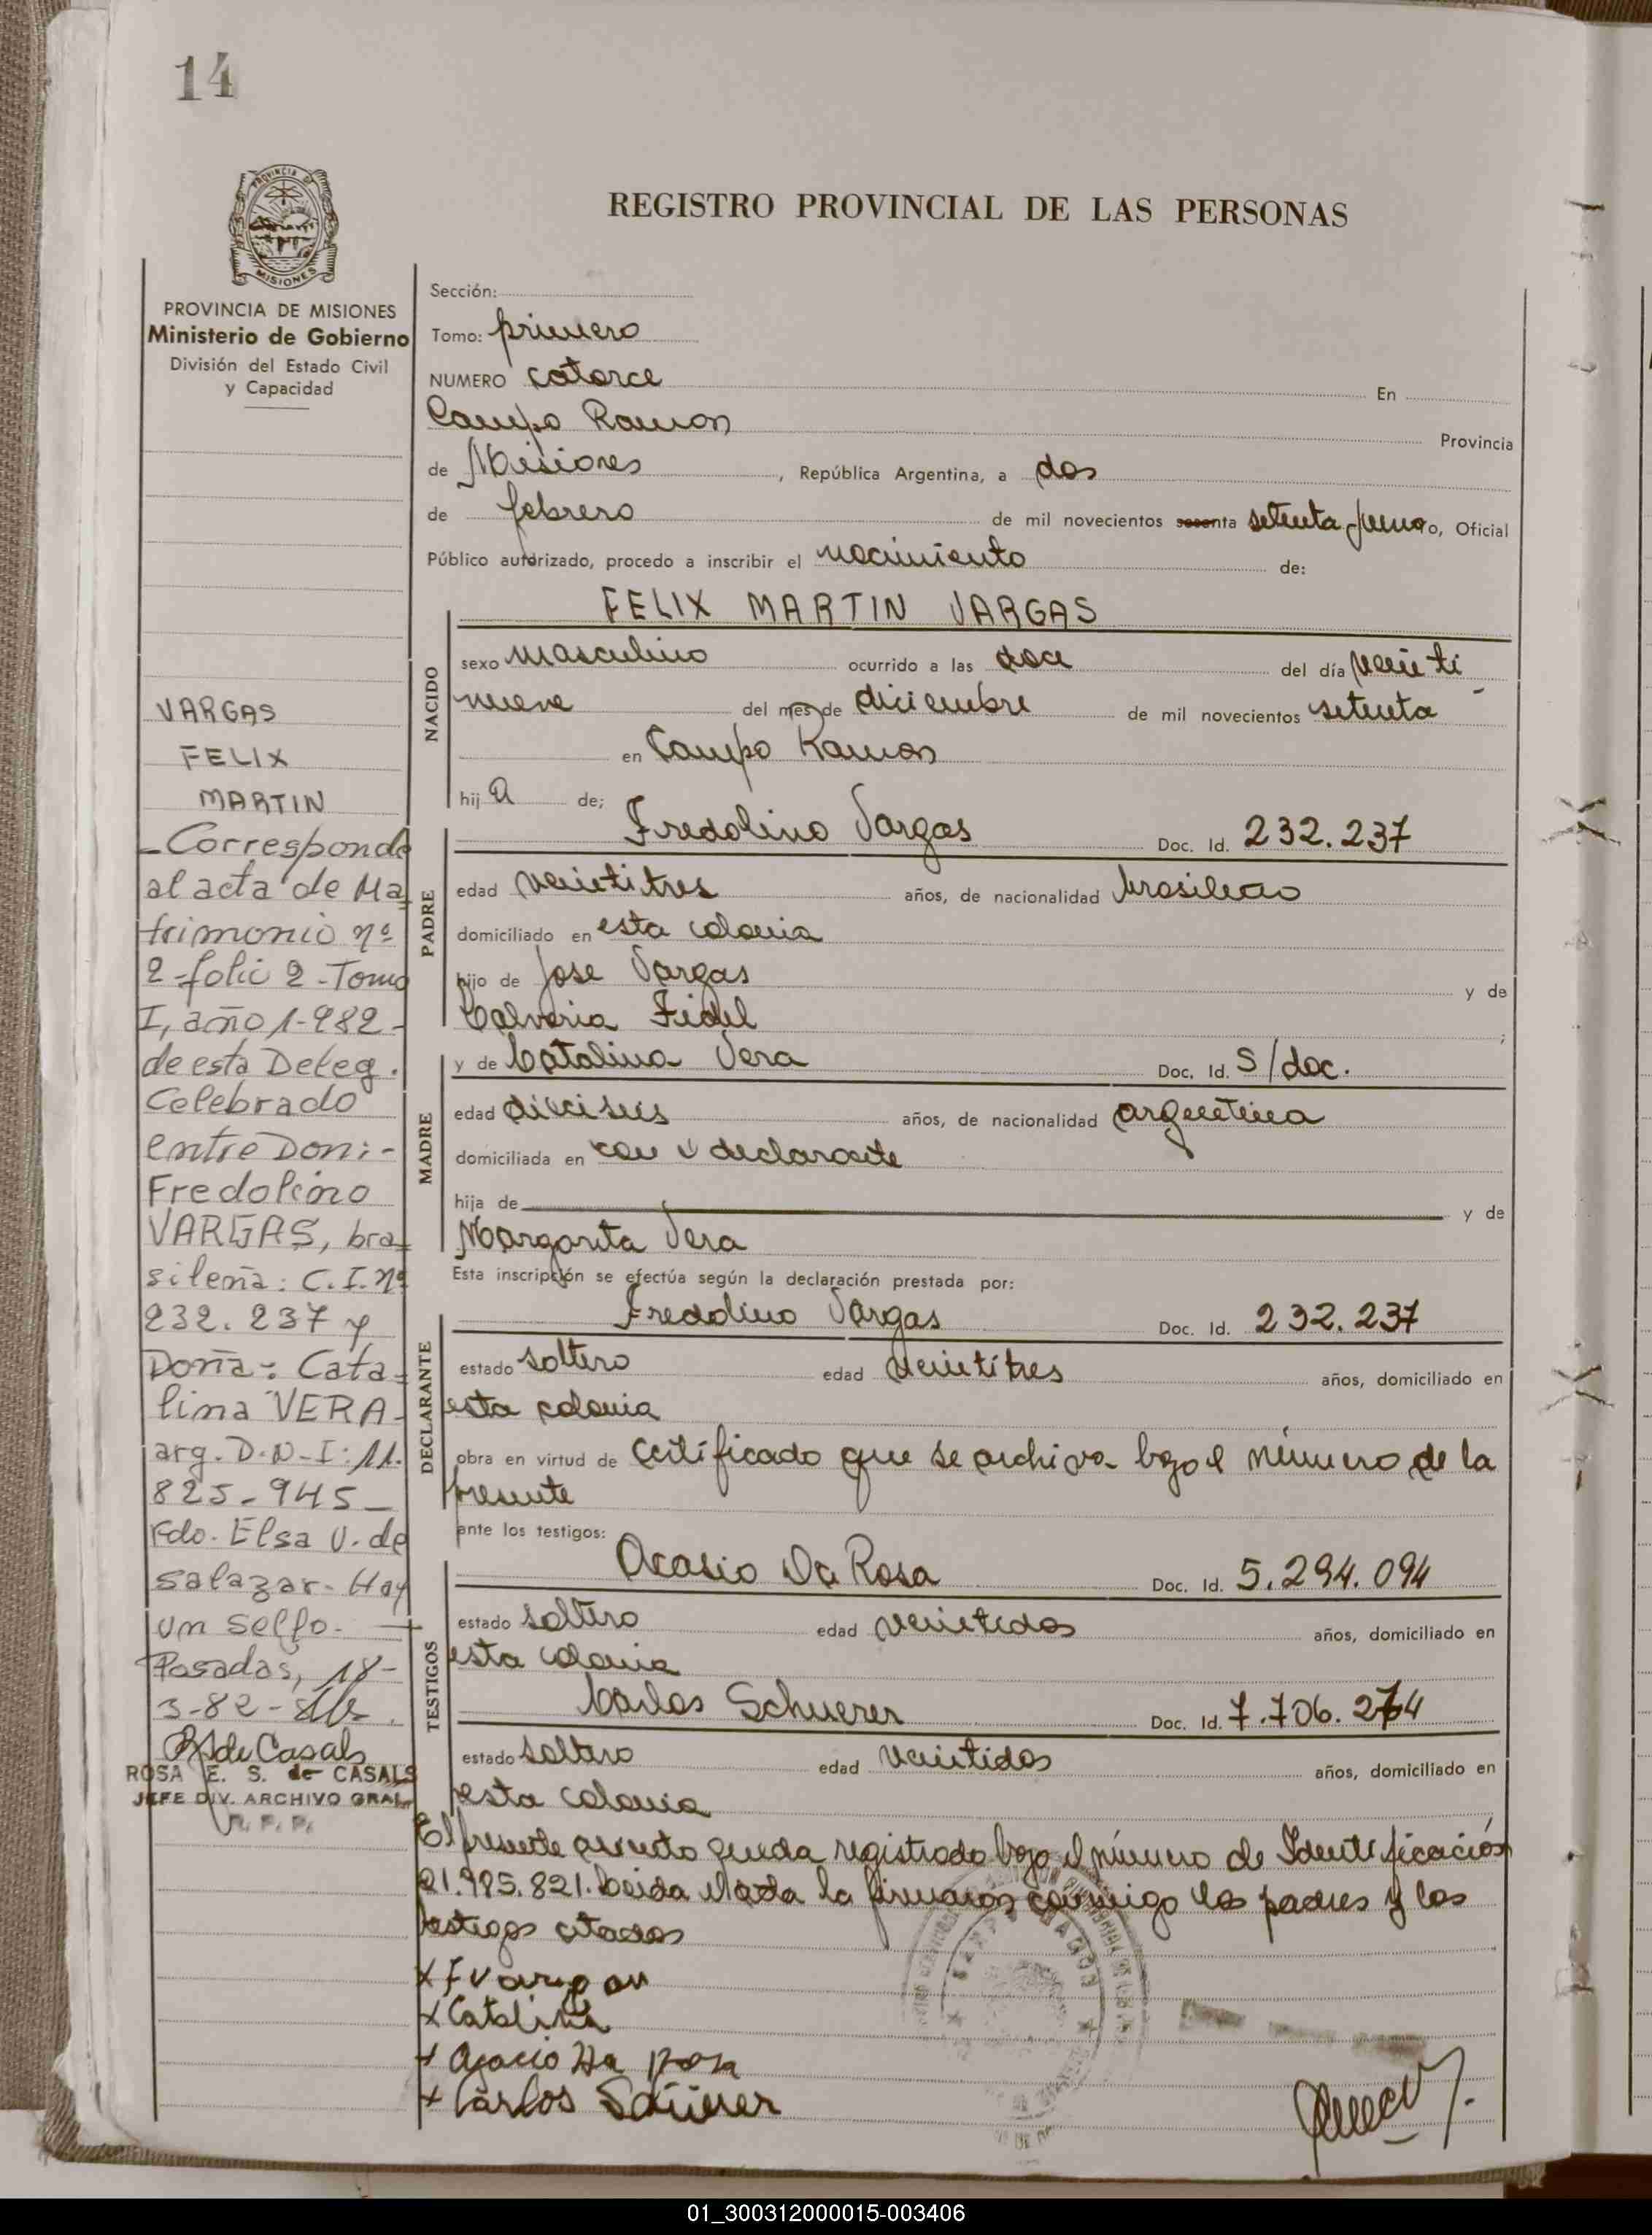 14
REGISTRO PROVINCIAL DE LAS PERSONAS
PROVINCIA DE MISIONES
Ministerio de Gobierno
División del Estado Civil
y Capacidad
VARGAS
FELIX
MARTIN
- Corresponde
al acta de Ma
trimonio nº
2-folio 2-Tomo
I, año 1-982-
de esta Deleg.
Celebrado
entre Don:-
Fredolino
VARGAS, bra
sileña: C.I. nº
232.237 y
Doña: Cata-
lina VERA-
arg. D-N-I: 11.
825-945-
Fdo. Elsa V. de
Salazar- Hay
un sello.
Posadas, 18-
3-82-
RSde Casals
ROSA E. S. de CASALS
JEFE DIV. ARCHIVO GRAL.
R. P. P.
Sección:
Tomo: primero
NUMERO catorce En
Campo Ramon Provincia
de Misiones, República Argentina, a dos
de febrero de mil novecientos sesenta setenta y uno, Oficial
Público autorizado, procedo a inscribir el nacimiento de:
FELIX MARTIN VARGAS
NACIDO
sexo masculino ocurrido a las doce del día veinti
nueve del mes de diciembre de mil novecientos setenta
en Campo Ramon
hij a de;
PADRE
Fredolino Vargas Doc. Id. 232.237
edad veintitres años, de nacionalidad brasileño
domiciliado en esta colonia
hijo de Jose Vargas y de
Calveria Fidel ;
MADRE
y de Catalina Vera Doc. Id. S/doc.
edad dieciseis años, de nacionalidad argentina
domiciliada en con el declarante
hija de y de
Margarita Vera
Esta inscripción se efectúa según la declaración prestada por:
DECLARANTE
Fredolino Vargas Doc. Id. 232.237
estado soltero edad veintitres años, domiciliado en
esta colonia
obra en virtud de certificado que se archiva bajo el número de la
presente
ante los testigos:
TESTIGOS
Acasio Da Rosa Doc. Id. 5.294.094
estado soltero edad veintidos años, domiciliado en
esta colonia
Carlos Schuerer Doc. Id. 7.706.274
estado soltero edad veintidos años, domiciliado en
esta colonia
El presente asiento queda registrado bajo el número de Identificación
21.985.821. Leida el acta la firmaron conmigo los padres y los
testigos citados
x F Vargas
x Catalina
x Da Rosa
x Carlos
CAMPO RAMON
01_300312000015-003406